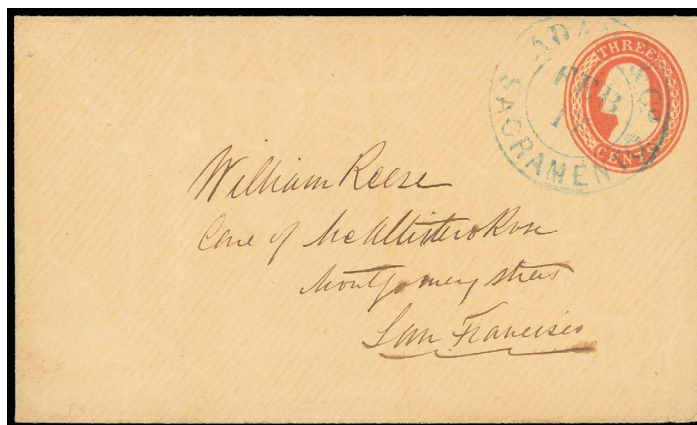 ADAMS & Co
FEB
SACRAMENTO
THREE
CENTS
William Reese
Care of McAllister & Rose
Montgomery street
San Francisco